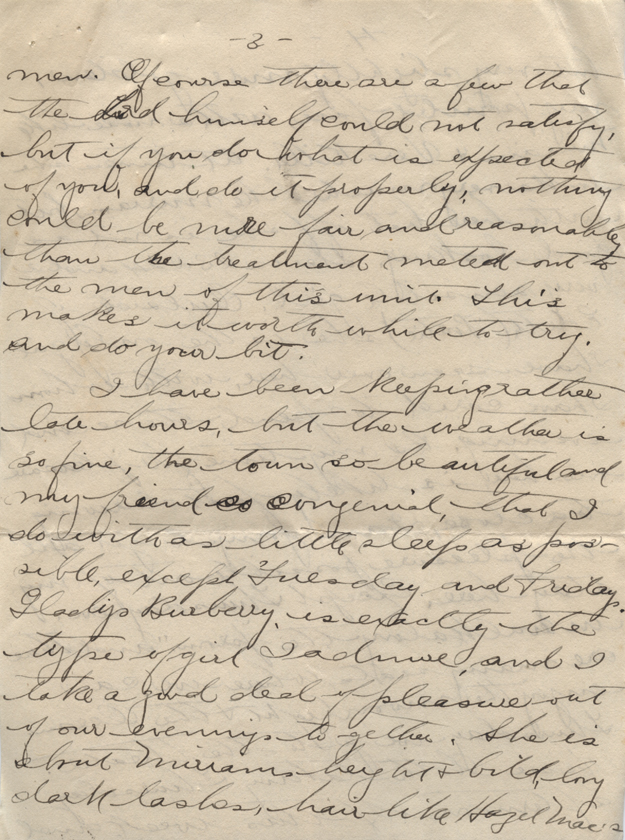 -3-
men. Of course there are a few that
the Lord himself could not satisfy,
but if you do what is expected
of you, and do it properly, nothing
could be more fair, and reasonable
than the treatment meted out to
the men of this unit. This
makes it worth while to try.
and do your bit.
I have been keeping rather
late hours, but the weather is
so fine, the town so beautiful and
my friend so congenial, that I
do with as little sleep as pos-
sible, except Tuesday and Friday.
Gladys Burberry, is exactly the
type of girl I admire, and I
take a good deal of pleasure out
of our evenings together. She is
about Miriams height & bild, long
dark lashes, hair like Hazel Mac's